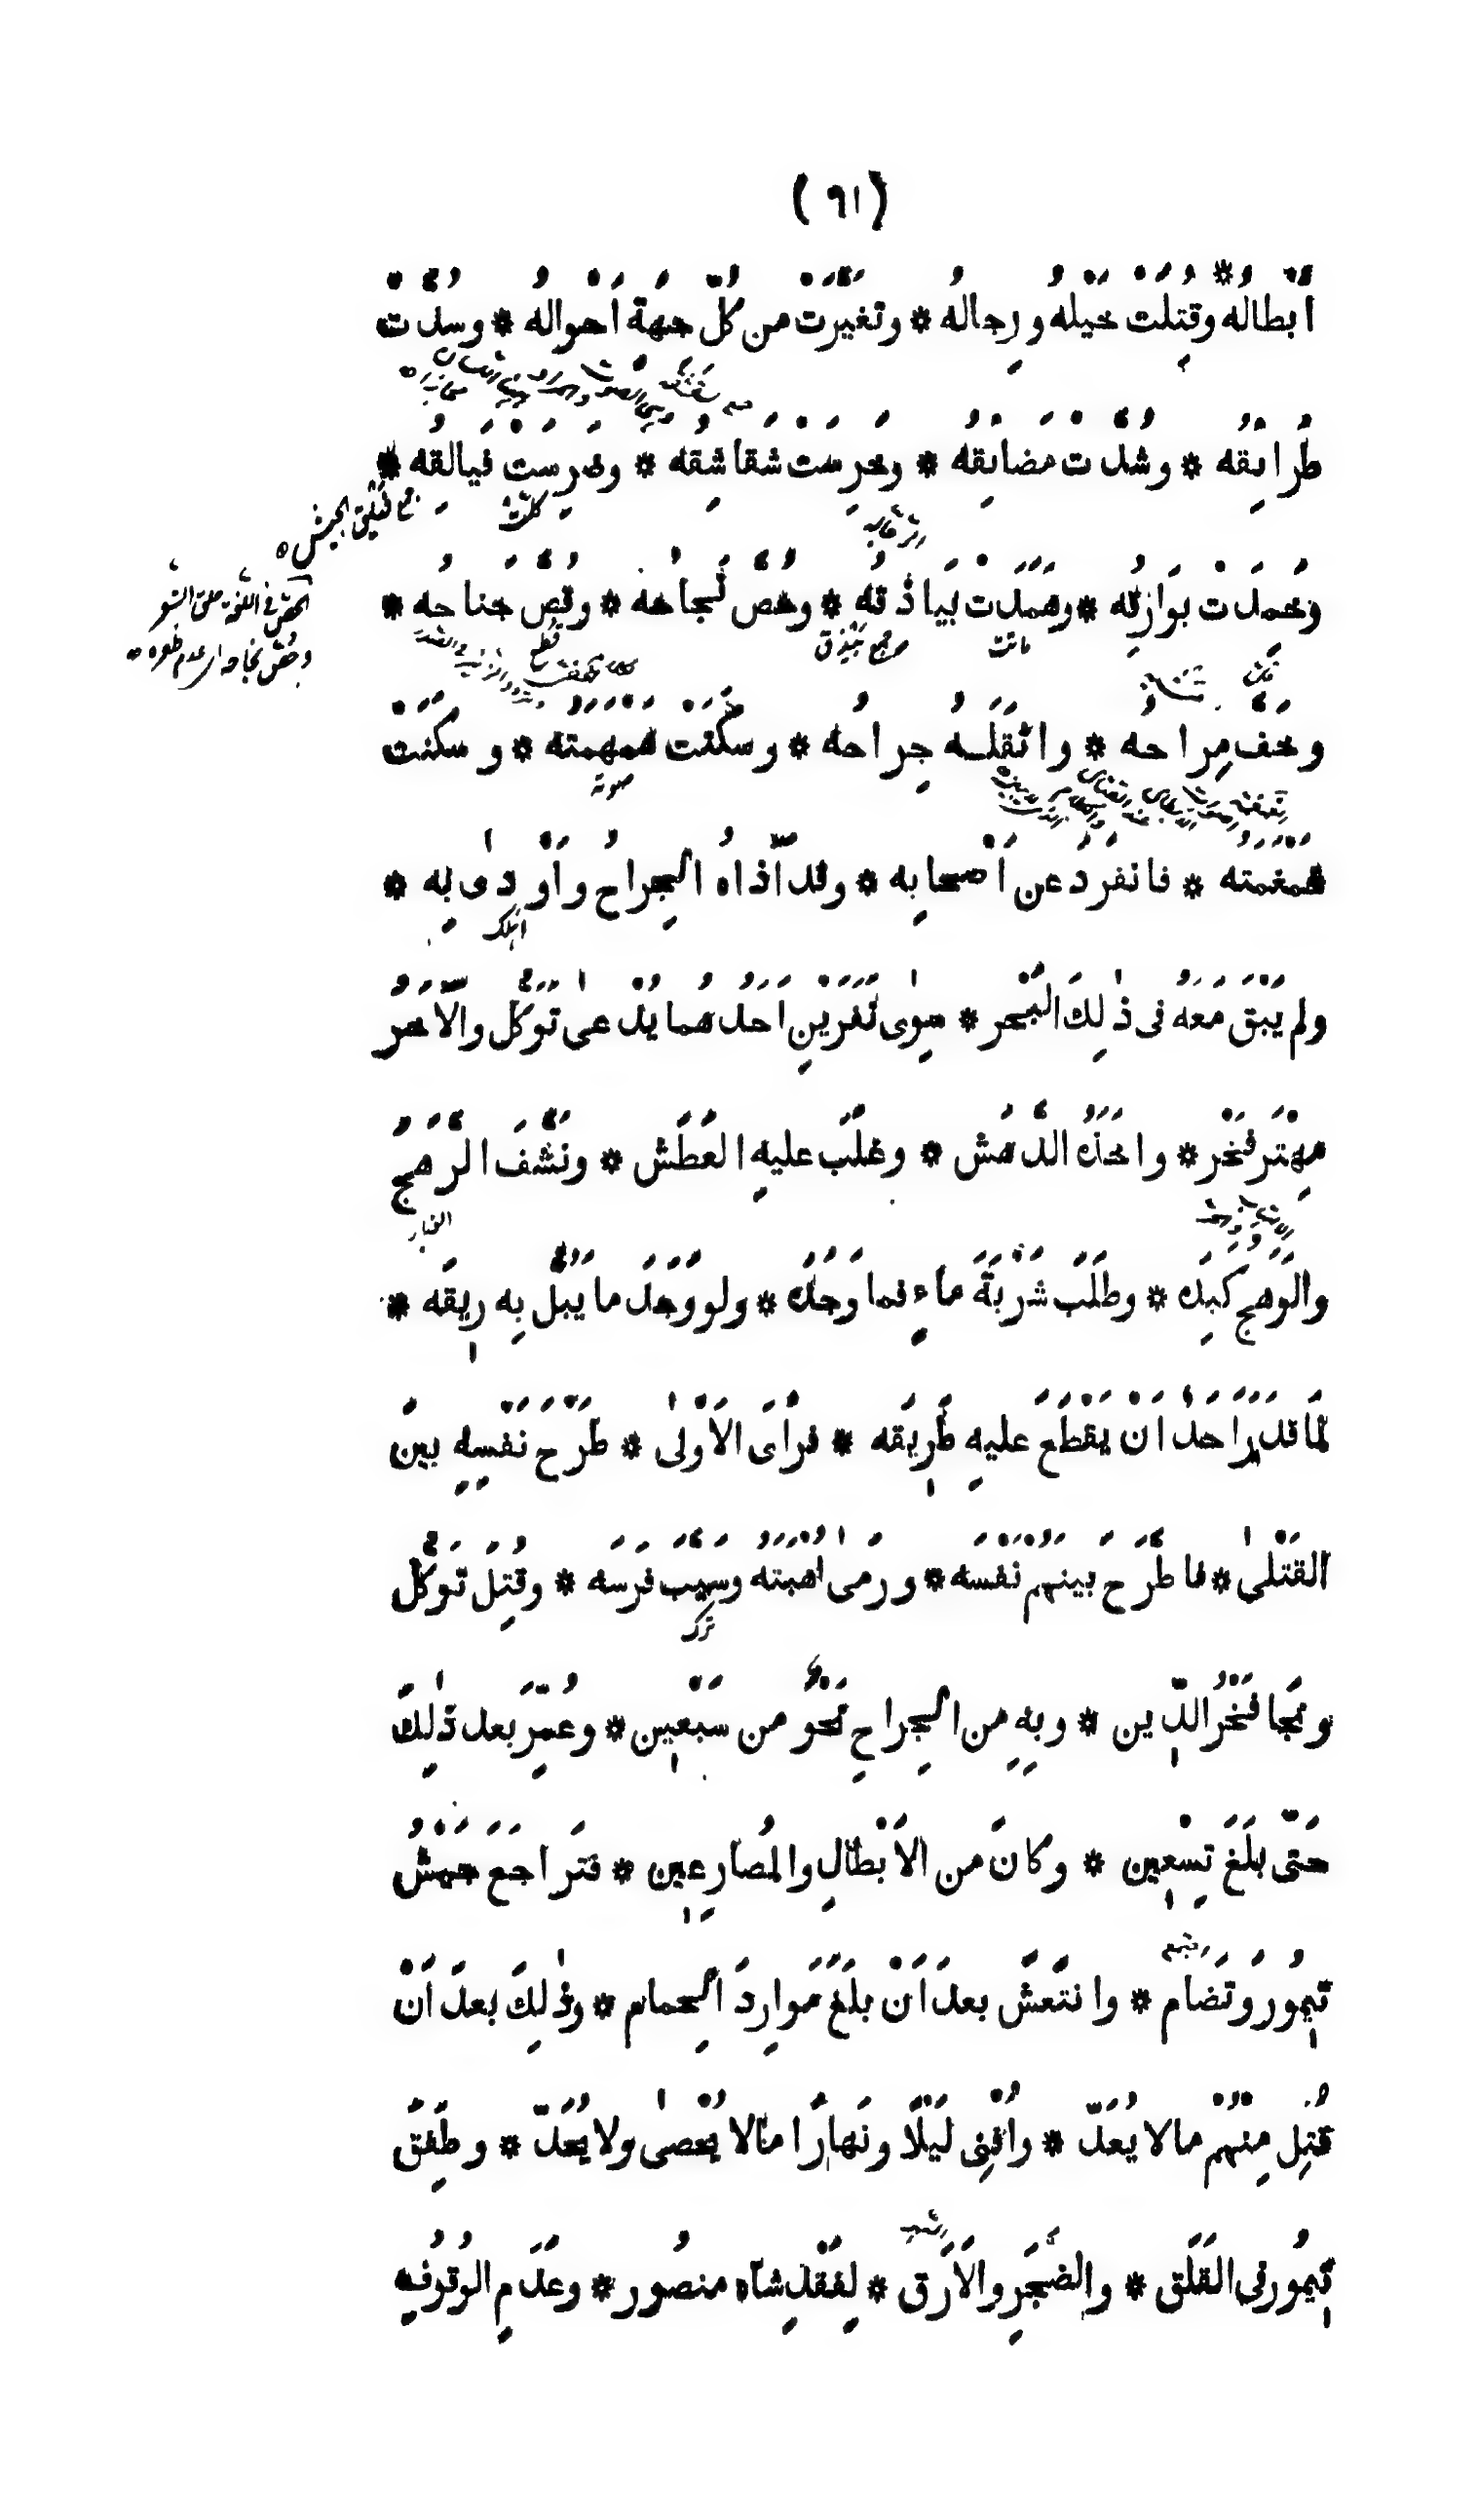 (٩١)
اَبْطالُهُ * وقُتِلَتْ خَيْلُهُ ورِجالُهُ * وتغيَّرَتْ من كُلّ جهَة اَحْوالُه * وسُدَّتْ
طُرائقُه * وشُدَّتْ مَضائِقُه * وخَرِسَتْ شَقاشِقُه * وضَرِسَتْ فَيالقُه *
وخَمَدَتْ بَوَازِقُه * وهَمَدَتْ بَيَاذقُه * وحُصَّ نَجاحُه * وقُصَّ جَناحُه *
وخَفَّ مِراحُه * واثْقَلَــهُ جِراحُه * وسكَتَتْ هَمْهَمَتُه * وسكَنَتْ
غَمْغَمَتُه * فانفَرَدَ عن اَصْحابِه * وقد آذاهُ الجِراحُ واَوْدىٰ بِه *
ولم يَبْقَ مَعَهُ فى ذٰلِكَ البَحْر * سِوٰى نَفَرَيْنِ اَحَدُهُما يُدْعىٰ تَوَكُّل والآخَرُ
مِهْتَر فَخْر * واخَذَهُ الدَّهَش * وغلَبَ عليهِ العَطَش * ونَشَّفَ الرَّهَجُ
والوَهَجُ كَبِدَه * وطَلَبَ شَرْبَةَ ماءٍ فما وَجَدَه * ولو وَجَدَ ما يَبُلُّ بِه رِيقَه *
لَمَا قدَرَ اَحَدٌ اَنْ يَقْطَعَ عليهِ طَرِيقَه * فرأىَ الاَوْلىٰ * طَرْحَ نَفْسِهِ بينَ
القَتْلىٰ * فاطَّرَحَ بينَهُم نَفْسَه * ورَمىٰ اُهْبَتَهُ وسَيَّبَ فرَسَه * وقُتِلَ تَوَكُّل
ونجَا فَخْرُ الدّين * وبِهِ مِن الجِراحِ نَحْوٌ من سَبْعِين * وعُمِّرَ بعد ذٰلِكَ
حَتّى بلَغَ تِسْعِين * وكانَ من الاَبْطالِ والمُصارِعِين * فتَراجَعَ جَيْشُ
تيمُور وَتَضَام * وانتَعَشَ بعدَ اَنْ بلَغَ مَوارِدَ الحِمام * وذٰلِكَ بعدَ اَنْ
قُتِل مِنْهُمْ مالا يُعَدّ * واُفْنِى لَيْلًا ونَهارًا مالا يُحْصىٰ ولا يُحَدّ * وطَفِقَ
تيمُور فى القَلَق * والضَّجَرِ والاَرَق * لِفَقْدِ شاه منصُور * وعَدَمِ الوُقُوفِ